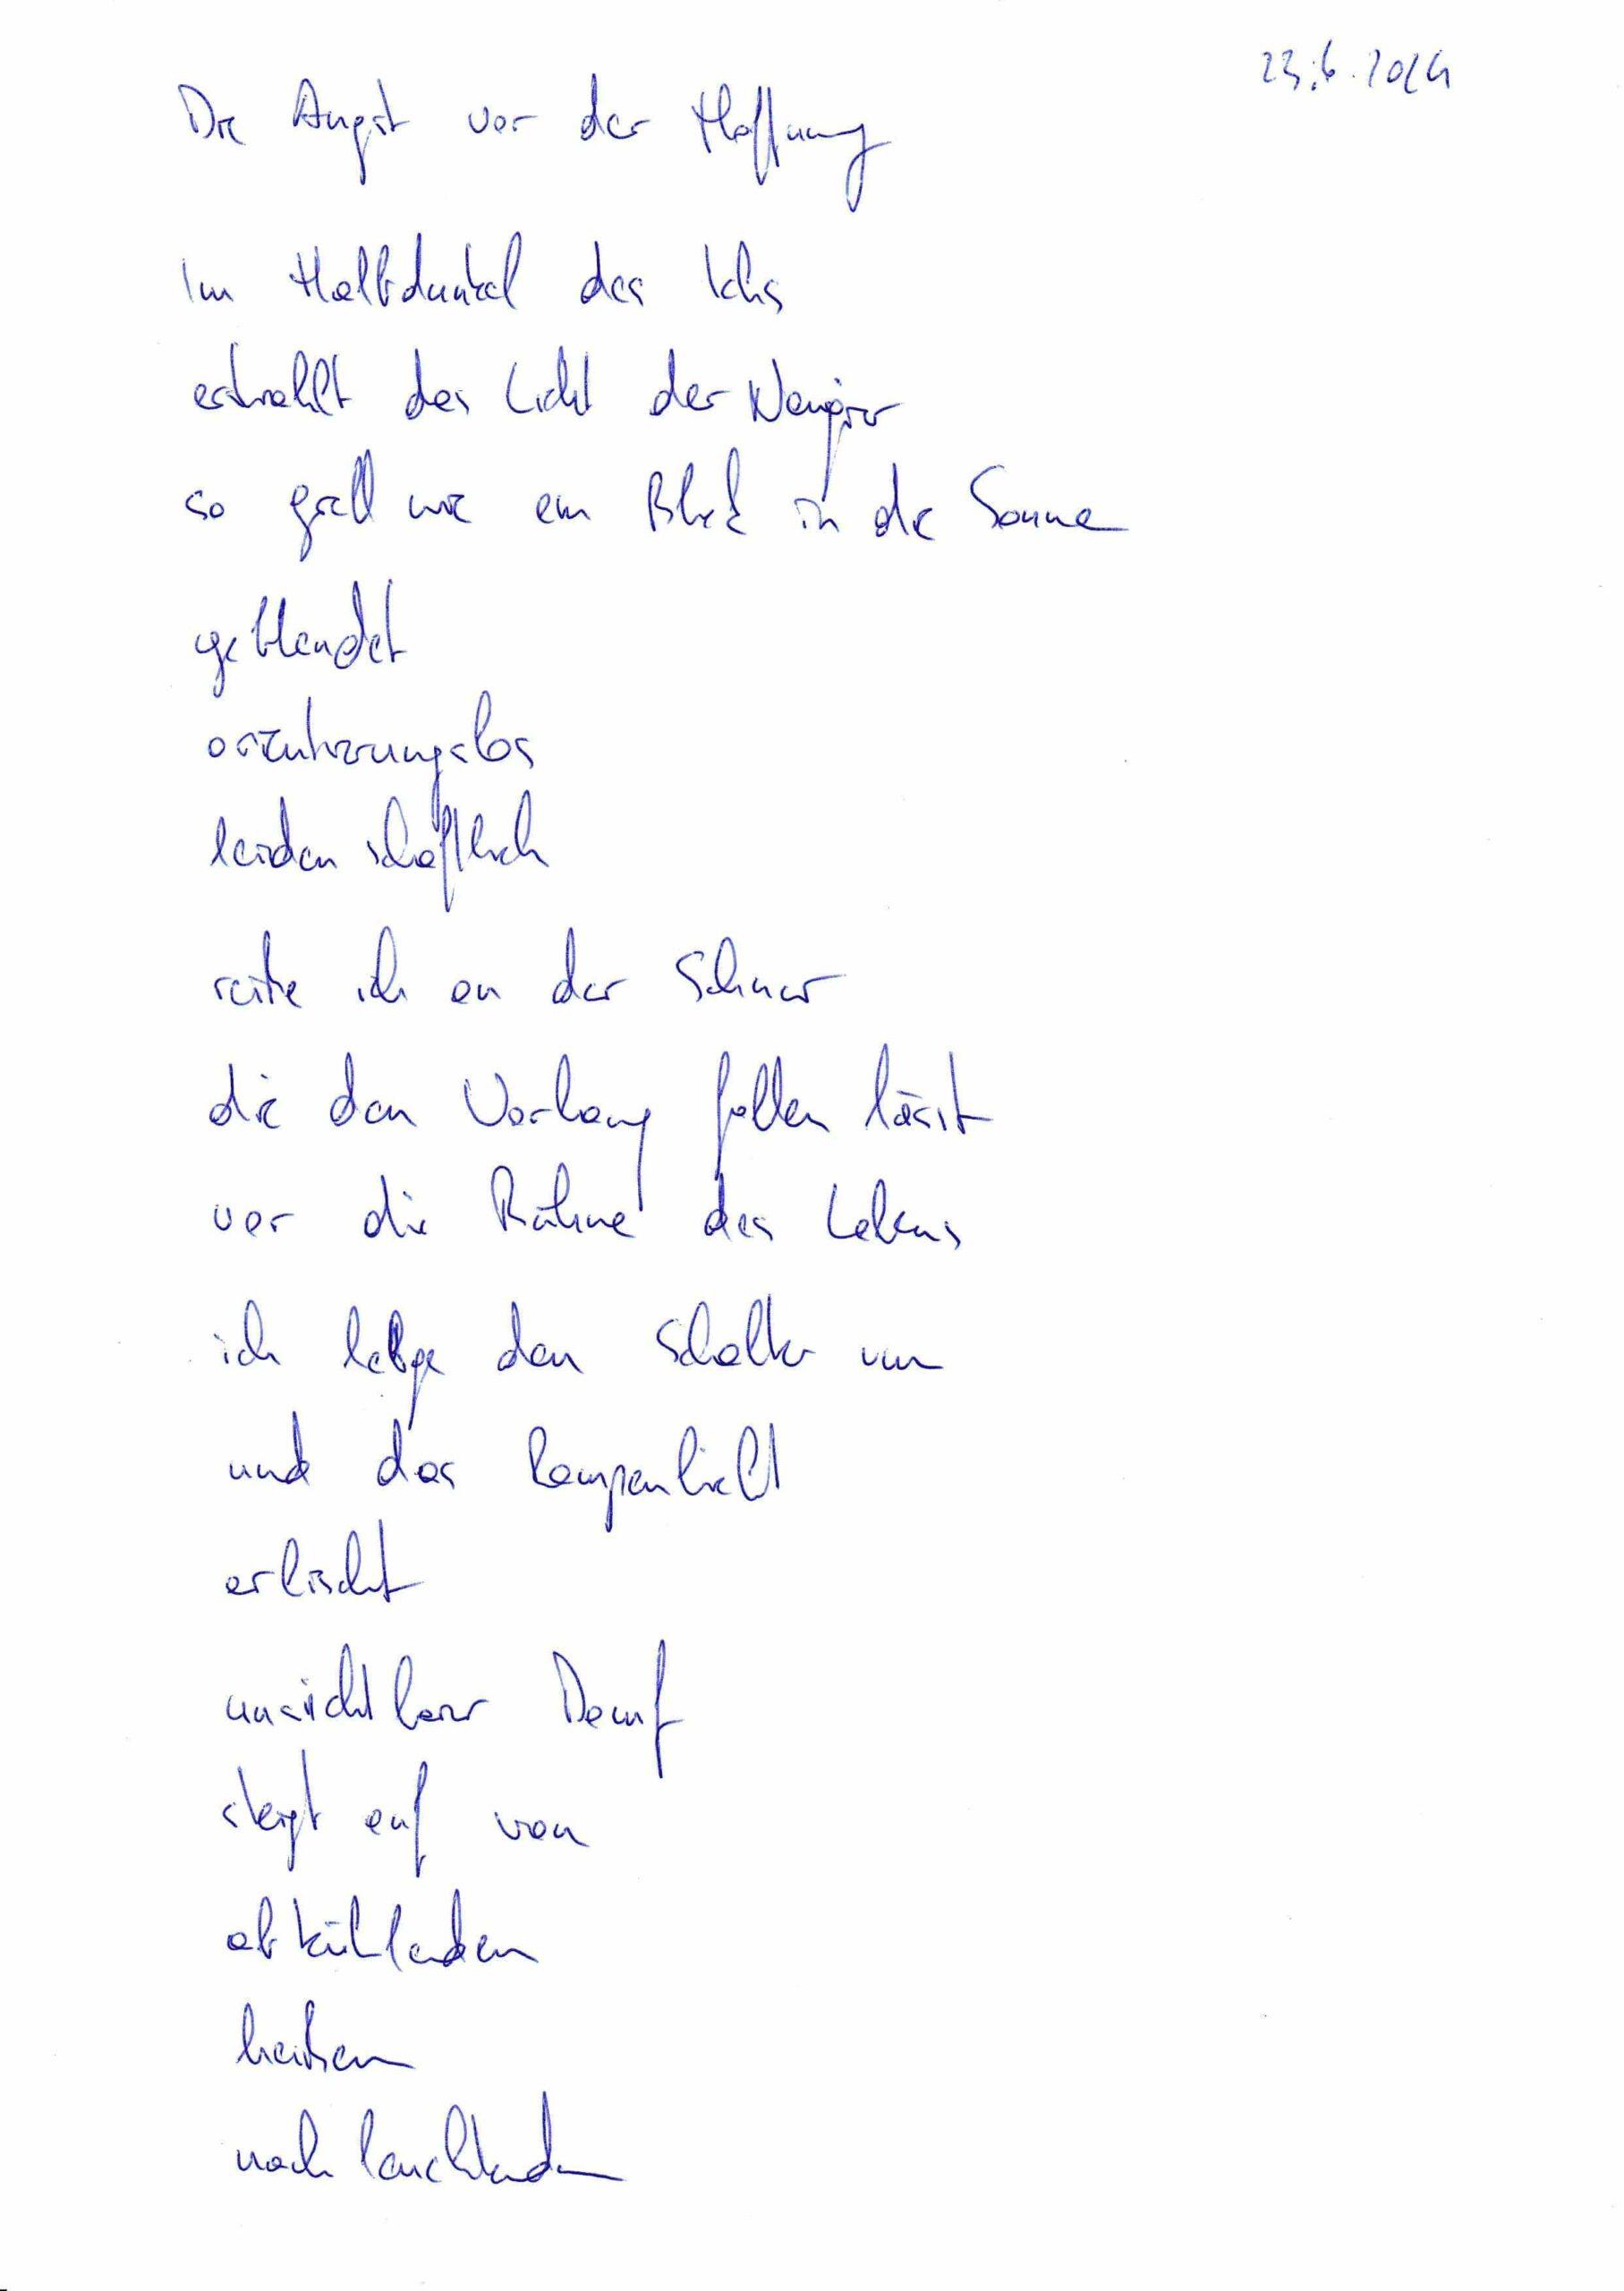 23.6.2024
Die Angst vor der Hoffnung
Im Halbdunkel des Ichs
erstrahlt das Licht der Neugier
so grell wie ein Blick in die Sonne
geblendet
orientierungslos
leidenschaftlich
reiße ich an der Schnur
die den Vorhang fallen lässt
vor die Bühne des Lebens
ich lege den Schalter um
und das Lampenlicht
erlischt
unsichtbarer Dampf
steigt auf von
abkühlenden
heißen
nachleuchtenden